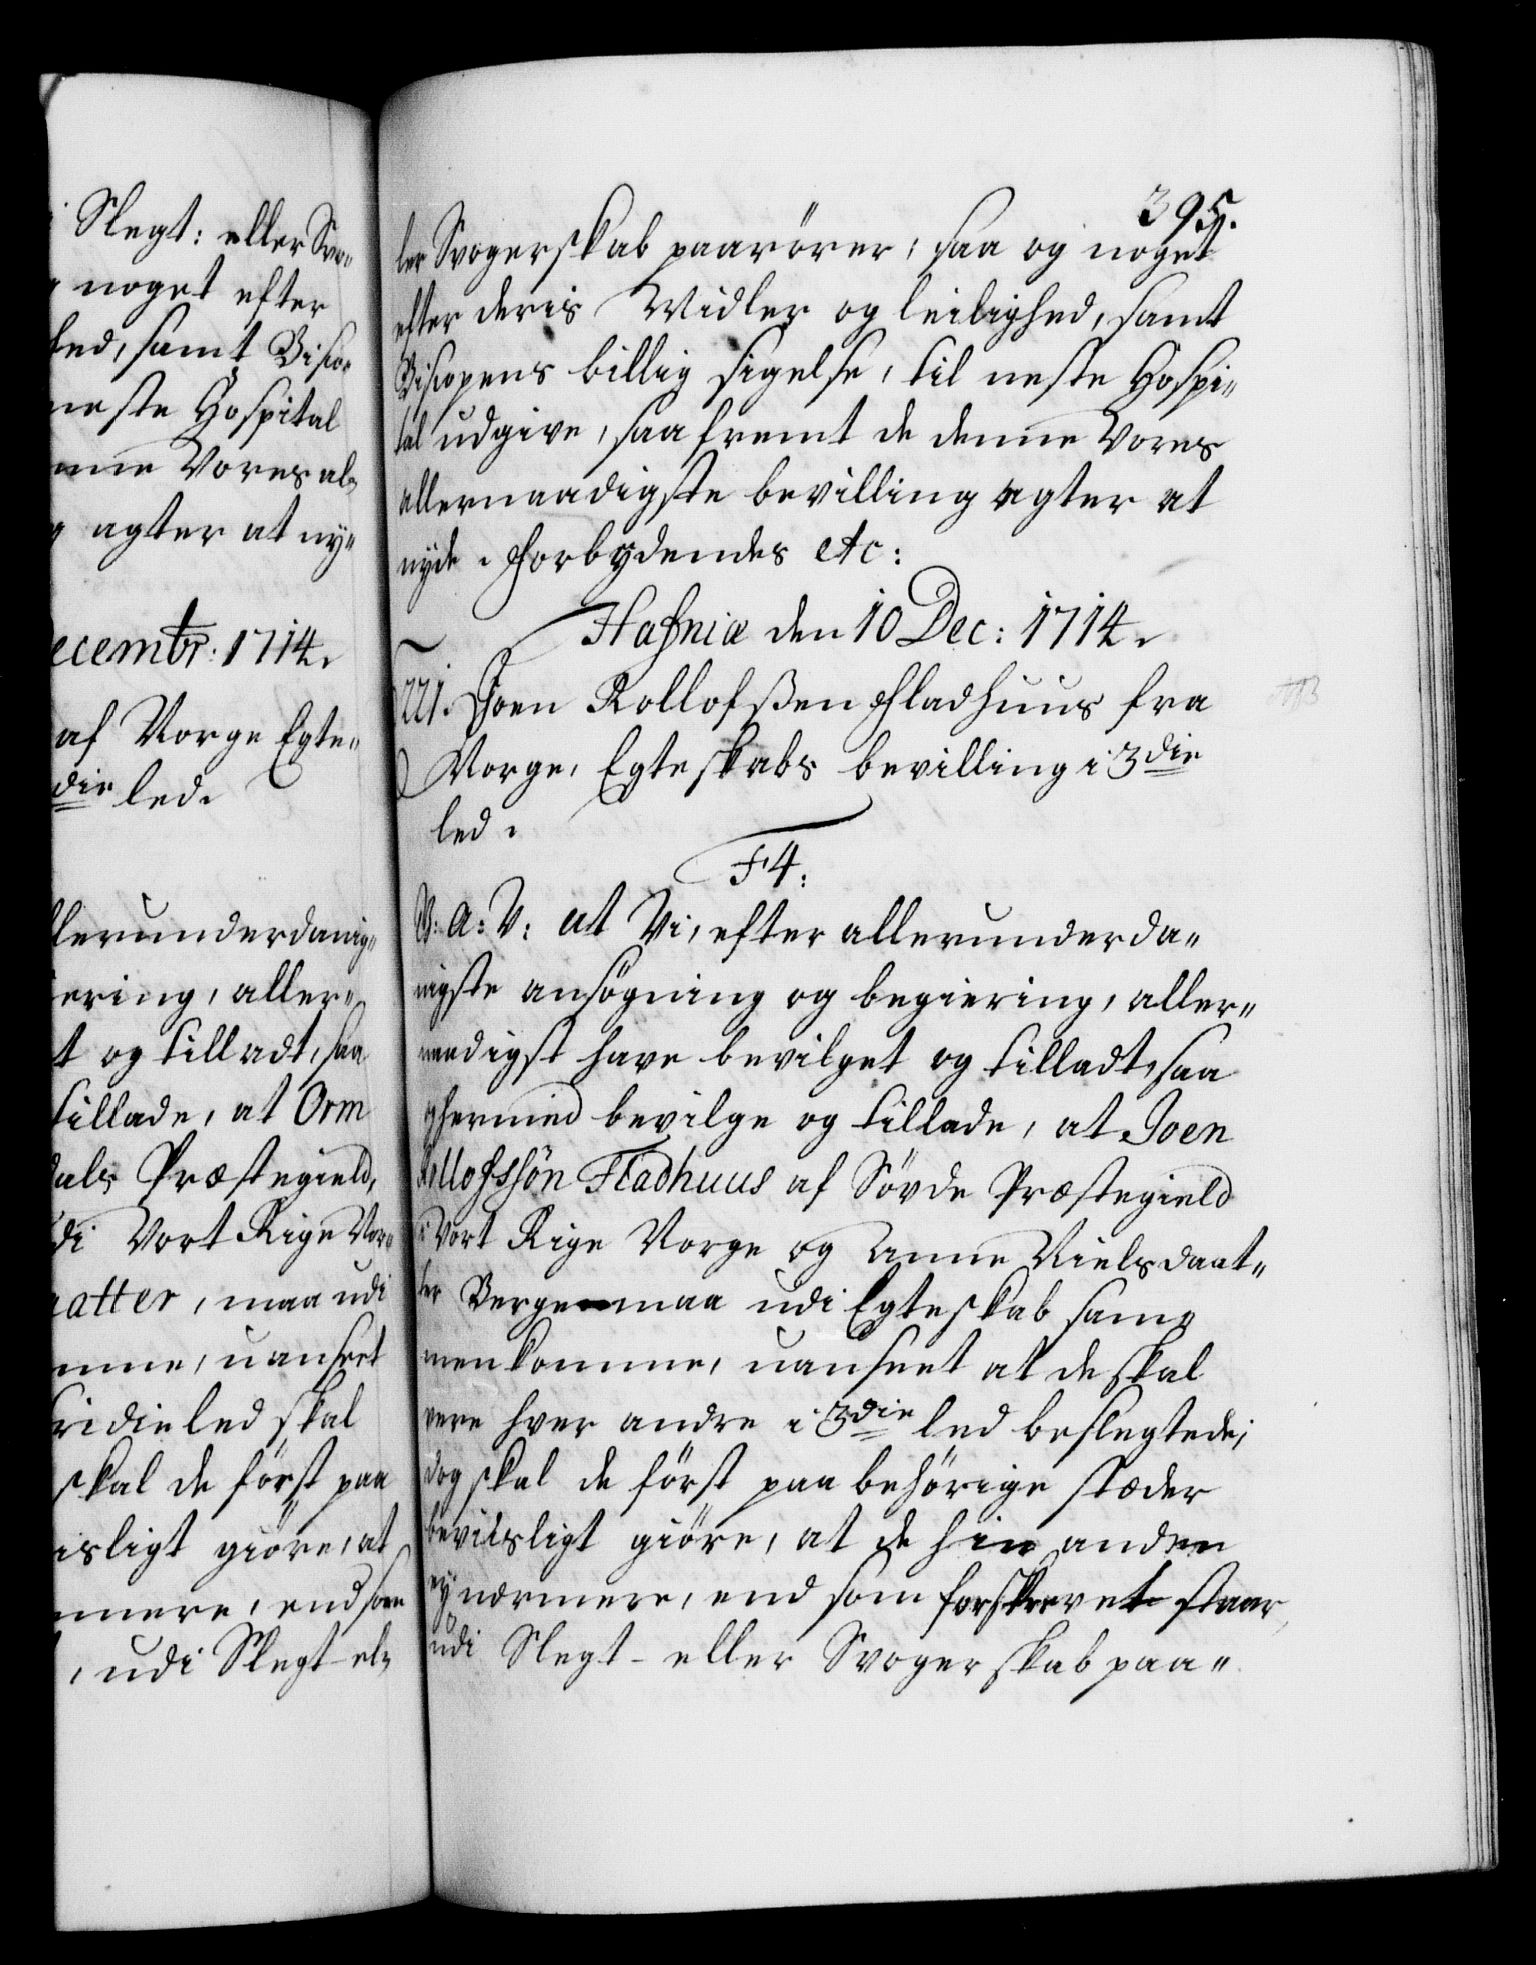 Slegt: eller Svo-
noget efter
hed, samt Bisco-
neste Hospital
nne Vores al-
agter at ny-
ecembr: 1714.
af Norge Egte-
die led.
llerunderdanig-
iering, aller-
t og tilladt, saa
tillade, at Orm
dals Præstegield,
di Vort Rige Nor-
aatter, maa udi
mme, uanseet
tridie led skal
skal de först paa
isligt giöre, at
rmere, end som
, udi Slegt- el-
395.
ler Svogerskab paarörer, saa og noget
efter deris Midler og leilighed, samt
Biscopens billig sigelse, til neste Hospi-
tal udgive, saafremt de denne Vores
allernaadigste bevilling agter at
nyde. Forbydendes etc:
Hafniæ den 10 Dec: 1714.
221. Joen Rollofßen Fladhuus fra
Norge, Egteskabs bevilling i 3die
led.
F4:
V: A: V: at Vi, efter allerunderda-
nigste ansögning og begiering, aller-
naadigst have bevilget og tilladt, saa
og hermed bevilge og tillade, at Joen
Rollofssön Fladhuus af Sövde Præstegield
i Vort Rige Norge og Anne Nielsdaat-
ter Berge maa udi Egteskab sam-
menkomme, uanseet at de skal
vere hver andre i 3die led beslegtede;
dog skal de först paa behörige stæder
bevisligt giöre, at de hin anden
ey nærmere, end som forskrevet staar,
udi Slegt- eller Svogerskab paa-